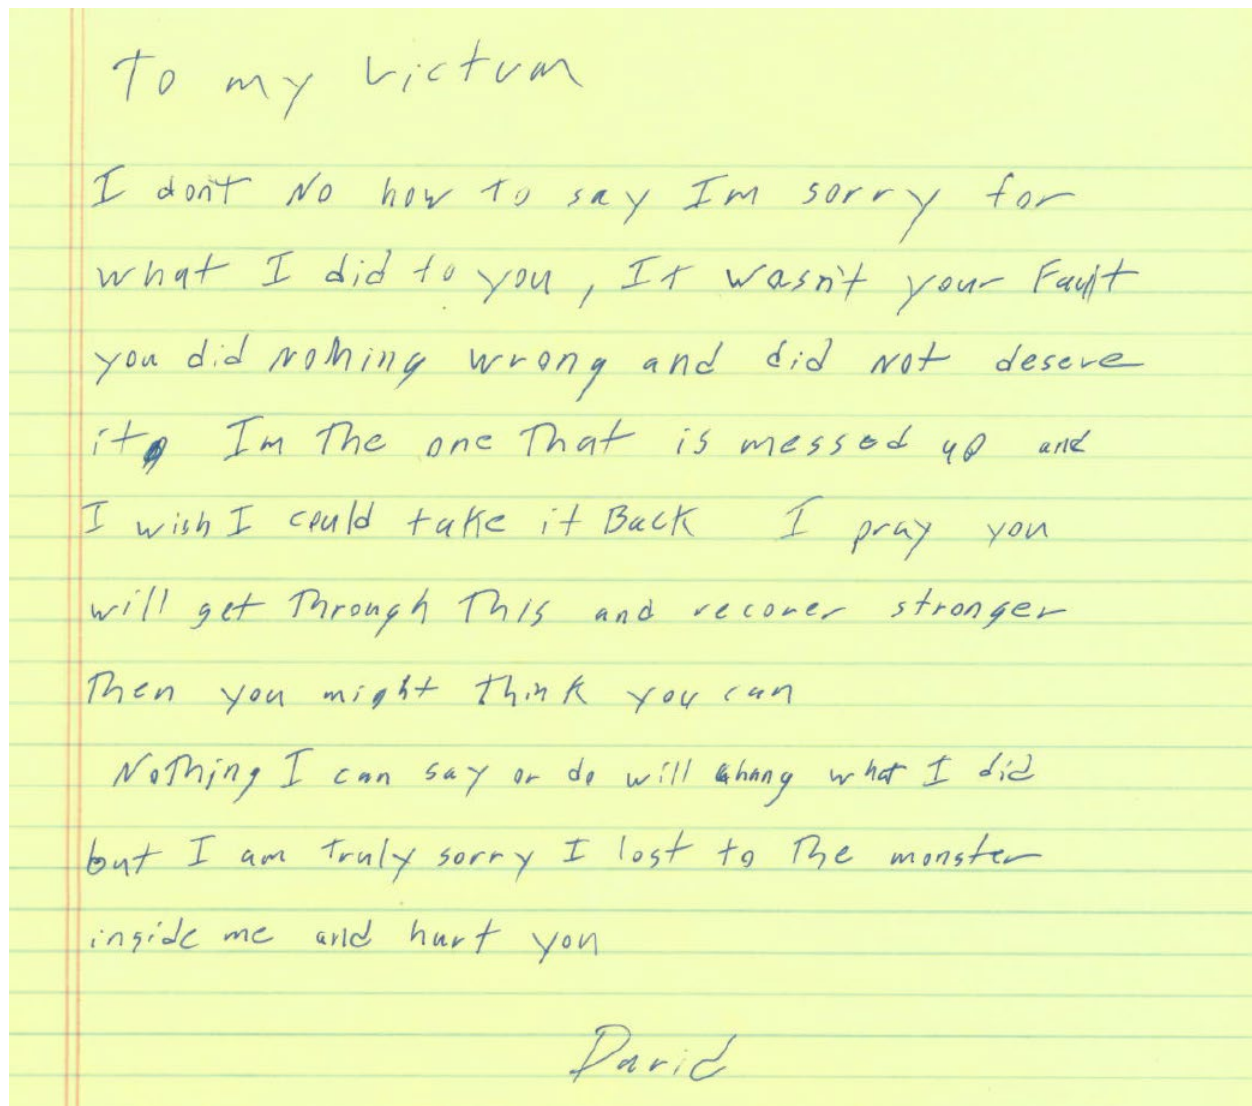 To my victum
I don't No how to say Im sorry for
what I did to you, It wasn't your Fault
you did nothing wrong and did not deserve
it, Im The one That is messed up and
I wish I could take it Back I pray you
will get Through This and recover stronger
Then you might think you can
Nothing I can say or do will chang what I did
but I am truly sorry I lost to The monster
inside me and hurt you
David